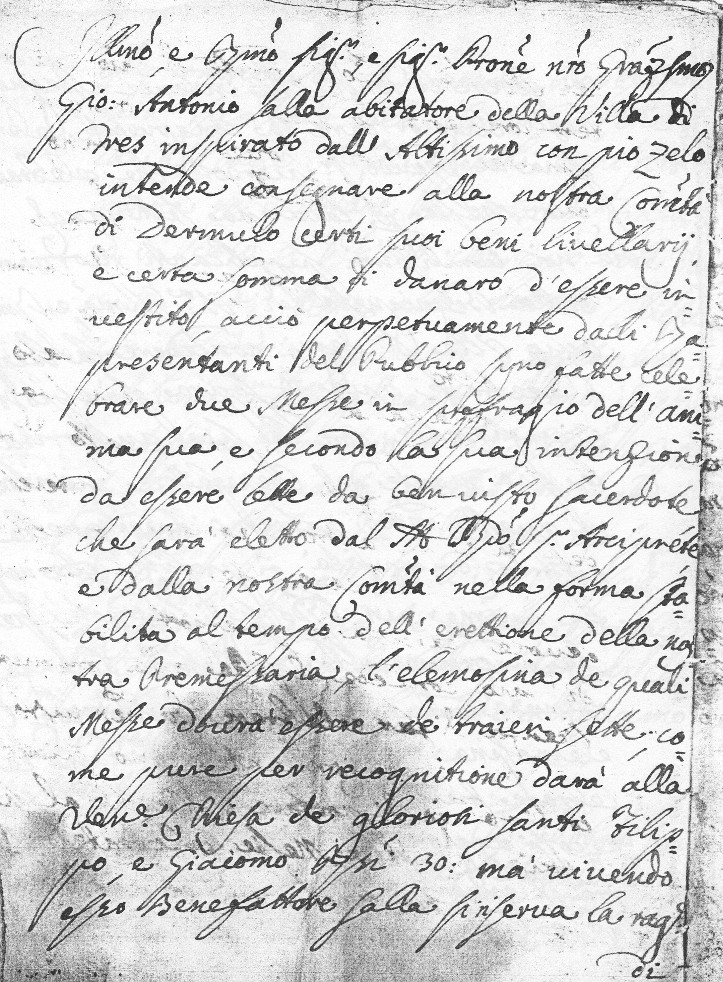 Illmo e Rmo sigr. e sigr. Prone nro Graziosmo
Gio: Antonio Salla abitatore della Villa di
Dres inspirato dall' Altissimo con pio zelo
intende consegnare alla nostra Comtà
di Dermulo certi suoi beni livellarij,
e certa somma di danaro d'essere in=
vestito, acciò perpetuamente dalli Ra=
presentanti del Publico sijno fatte cele=
brare due Messe in suffraggio dell' ani=
ma sua e secondo la sua intenzione
da essere lette da benvisto sacerdote
che sarà eletto dal sr. Arciprete
e dalla nostra Comtà nella forma sta=
bilita al tempo dell' erettione della nos=
tra Premessaria, l'elemosina de quali
Messe dourà essere de traieri sette, co=
me pure per recognitione darà alla
Vene. Chiesa de gloriosi santi Filip=
pò, e Giacomo Rsi 30: mà vivendo
esso Benefattore Salla si riserva la ragne
di